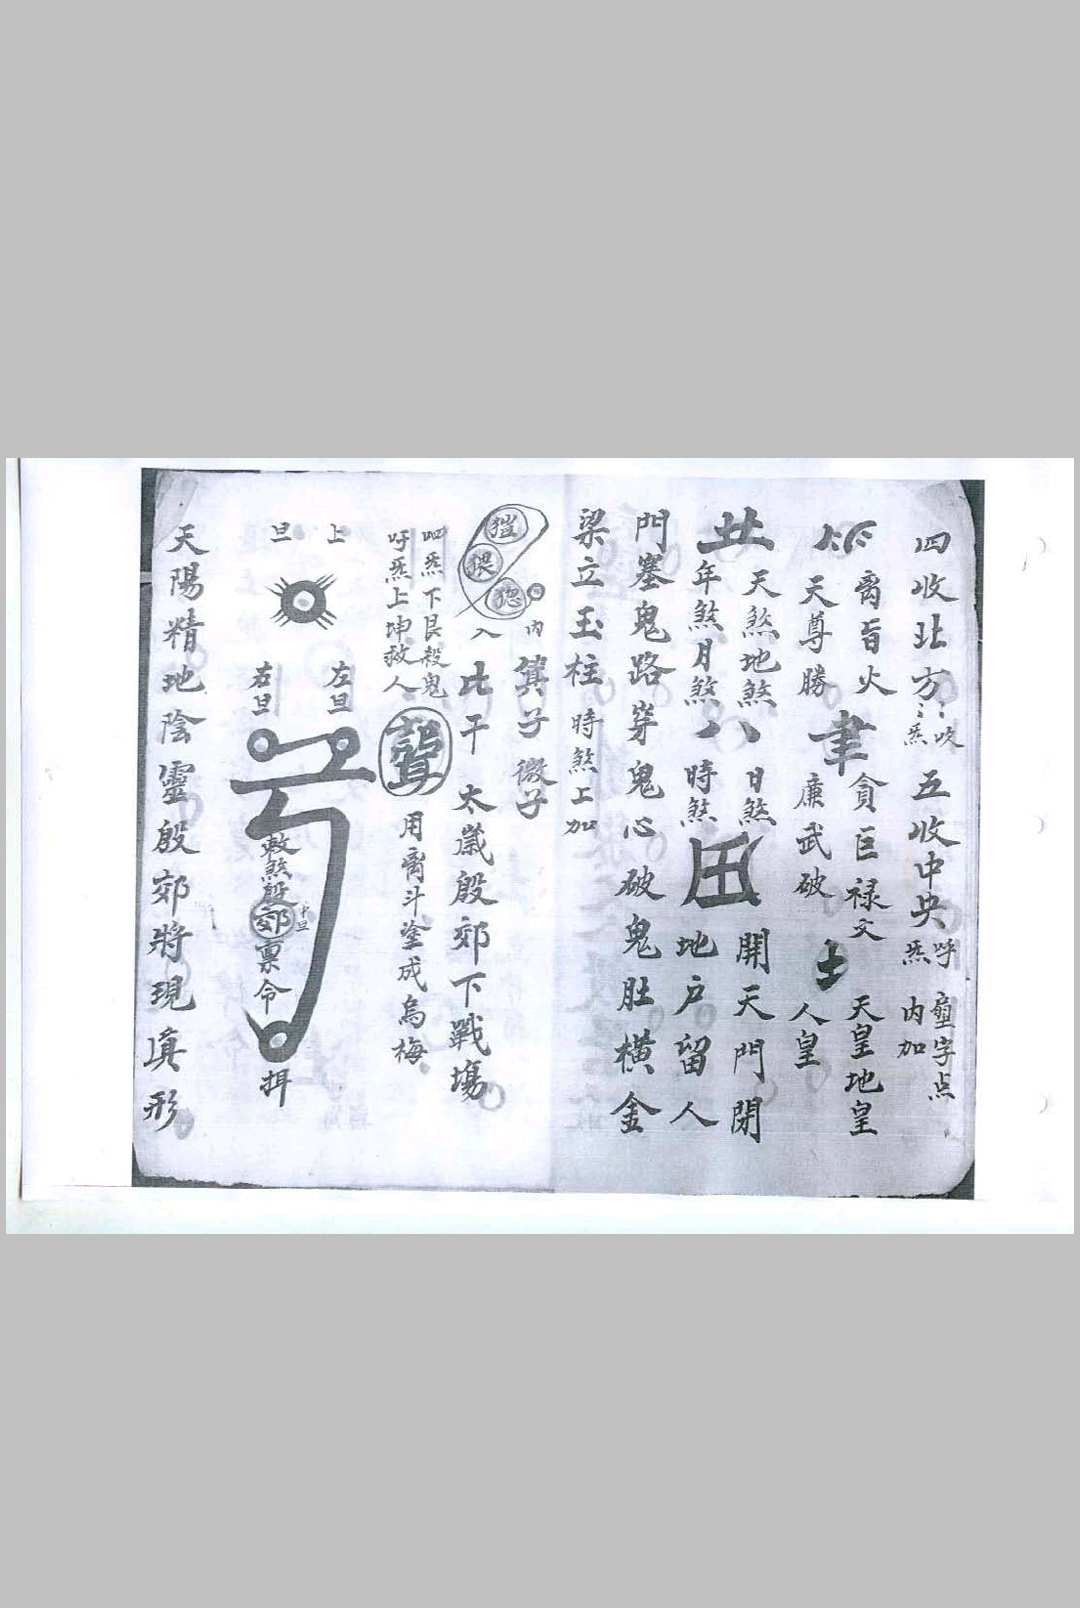 四收北方
五收中央
呼炁
內加
字点
离旨火
天尊勝
貪巨禄文
廉武破
土
天皇地皇
人皇
天煞地煞
年煞月煞
八
日煞
時煞
開天門閉
地戶留人
門塞鬼路穿鬼心破鬼肚橫金
梁立玉柱
時煞上加
內
箕子微子
入
比干太歲殷郊下戰場
炁下艮殺鬼
呼炁上坤救人
用离斗塗成烏梅
上
旦
左旦
右旦
敕煞殷郊稟令
天陽精地陰靈殷郊將現真形